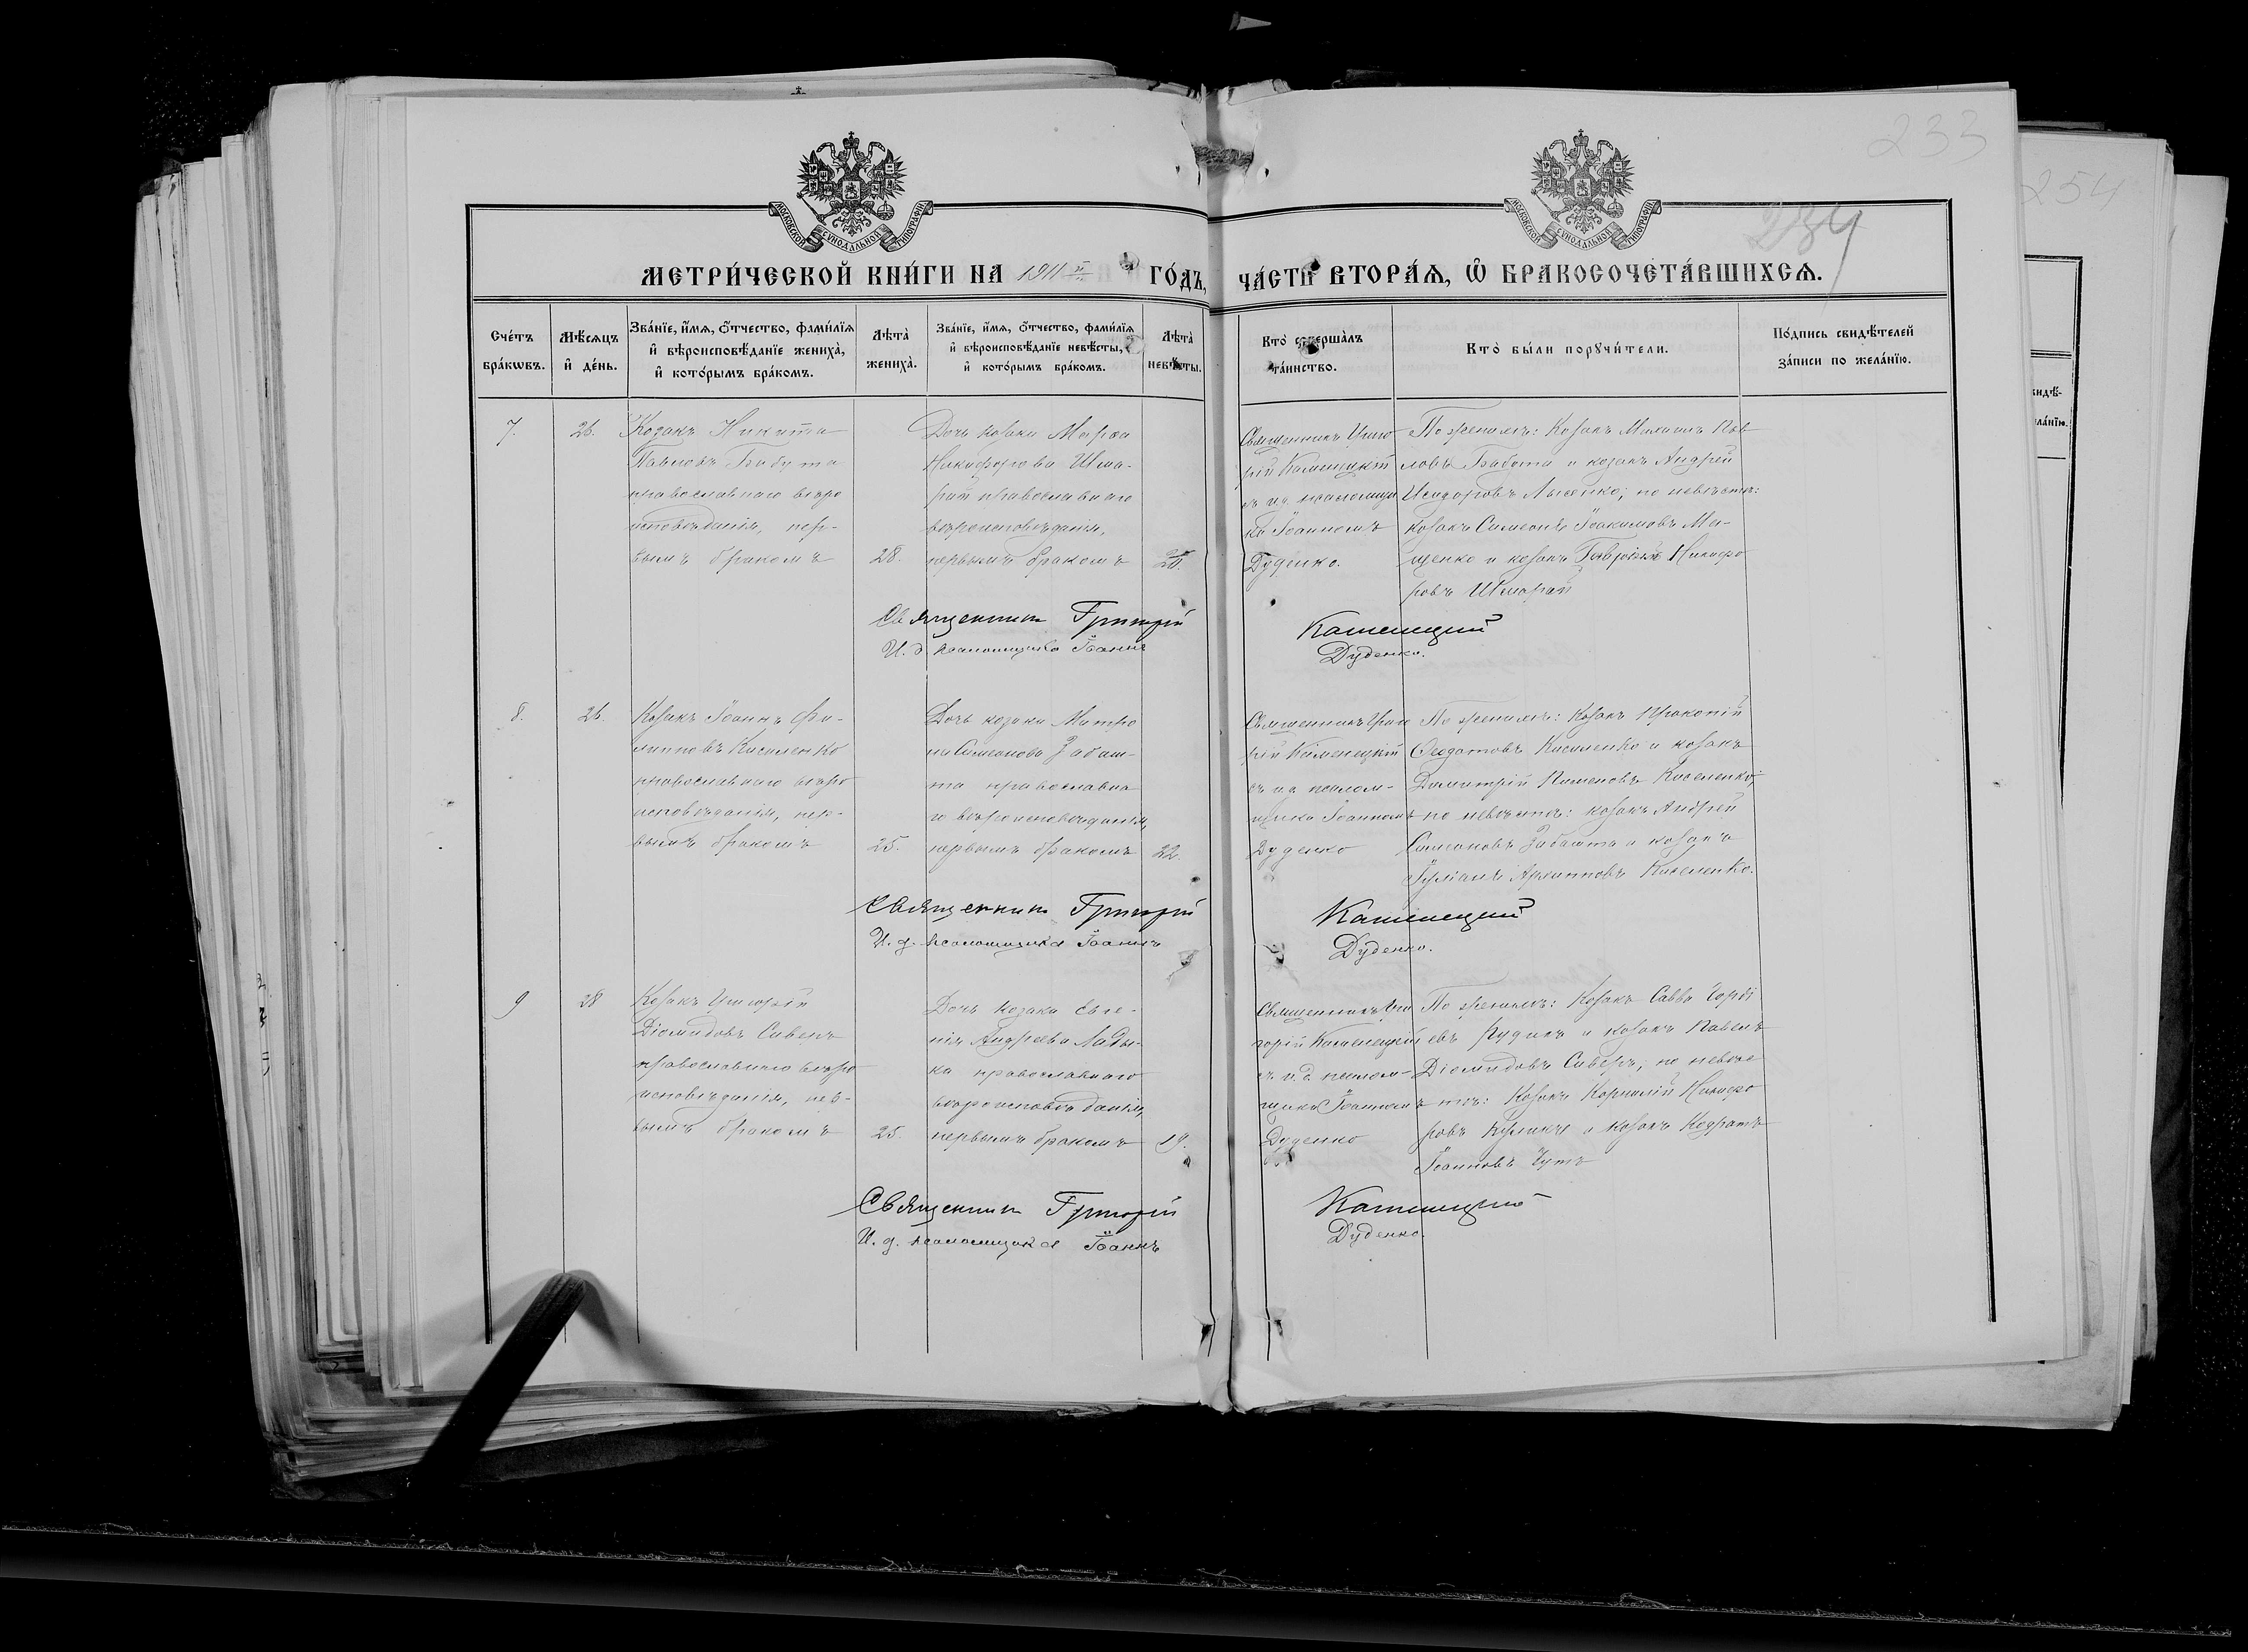 233
234
254
МОСКОВСКОЙ СУНОДАЛЬНОЙ ТИПОГРАФІИ
МОСКОВСКОЙ СУНОДАЛЬНОЙ ТИПОГРАФІИ
МЕТРИ́ЧЕСКОЙ КНИ́ГИ НА 1911й ГО́ДЪ,
ЧА́СТЬ ВТОРА́Я, Ѡ БРАКОСОЧЕТА́ВШИХСЯ.
Сче́тъ бра́кѡвъ.
Мѣ́сяцъ и҆ де́нь.
Зва́нїе, и҆́мя, ѻ҆́тчество, фами́лїя и҆ вѣроисповѣ́данїе жениха̀, и҆ кото́рымъ бра́комъ.
Лѣта̀ жениха̀.
Зва́нїе, и҆́мя, ѻ҆́тчество, фами́лїя и҆ вѣроисповѣ́данїе невѣ́сты, и҆ кото́рымъ бра́комъ.
Лѣта̀ невѣ́сты.
Кто̀ соверша́лъ та́инство.
Кто̀ бы́ли порꙋчи́тели.
По́дпись свидѣ́телей за́писи по жела́нїю.
7.
26.
Козакъ Никита
Павловъ Бабута
православнаго вѣро
исповѣданія, пер-
вымъ бракомъ
28.
Дочь козака Марѳа
Никифорова Шма-
рай православнаго
вѣроисповѣданія,
первымъ бракомъ
Священникъ Григо
рій Каменецкій
съ и.д. псаломщи
ка Іоанномъ
Дуденко.
По женихѣ: Козакъ Михаилъ Пав
ловъ Бабута и козакъ Андрей
Исидоровъ Лысенко; по невѣстѣ:
козакъ Симеонъ Іоакимовъ Ма-
щенко и козакъ Гавріилъ Никифо
ровъ Шмарай
Священникъ Григорій Каменецкій
И. д. псаломщика Іоаннъ Дуденко.
8.
26.
Козакъ Іоаннъ Фи-
липповъ Киселенко
православнаго вѣро
исповѣданія, пер-
вымъ бракомъ
25.
Дочь козака Матро
на Симеонова Забаш-
та православна
го вѣроисповѣданія,
первымъ бракомъ
22.
Священникъ Григо
рій Каменецкій
съ и.д. псалом-
щика Іоанномъ
Дуденко
По женихѣ: Козакъ Прокопій
Ѳеодотовъ Киселенко и козакъ
Димитрій Пименовъ Киселенко;
по невѣстѣ: козакъ Андрей
Симеоновъ Забашта и козакъ
Іуліанъ Архипповъ Киселенко.
Священникъ Григорій Каменецкій
И. д. псаломщика Іоаннъ Дуденко.
9
28
Козакъ Григорій
Діомидовъ Сиверъ
православнаго вѣро
исповѣданія, пер-
вымъ бракомъ
25.
Дочь козака Евге-
нія Андреева Лады-
ка православнаго
вѣроисповѣданія,
первымъ бракомъ
19.
Священникъ Гри
горій Каменецкій
съ и.д. псалом-
щика Іоанномъ
Дуденко
По женихѣ: Козакъ Савва Горді
евъ Рудикъ и козакъ Павелъ
Діомидовъ Сиверъ; по невѣс
тѣ: Козакъ Корнилій Никифо
ровъ Куликъ и козакъ Кодратъ
Іоанновъ
Священникъ Григорій Каменецкій
И. д. псаломщика Іоаннъ Дуденко.